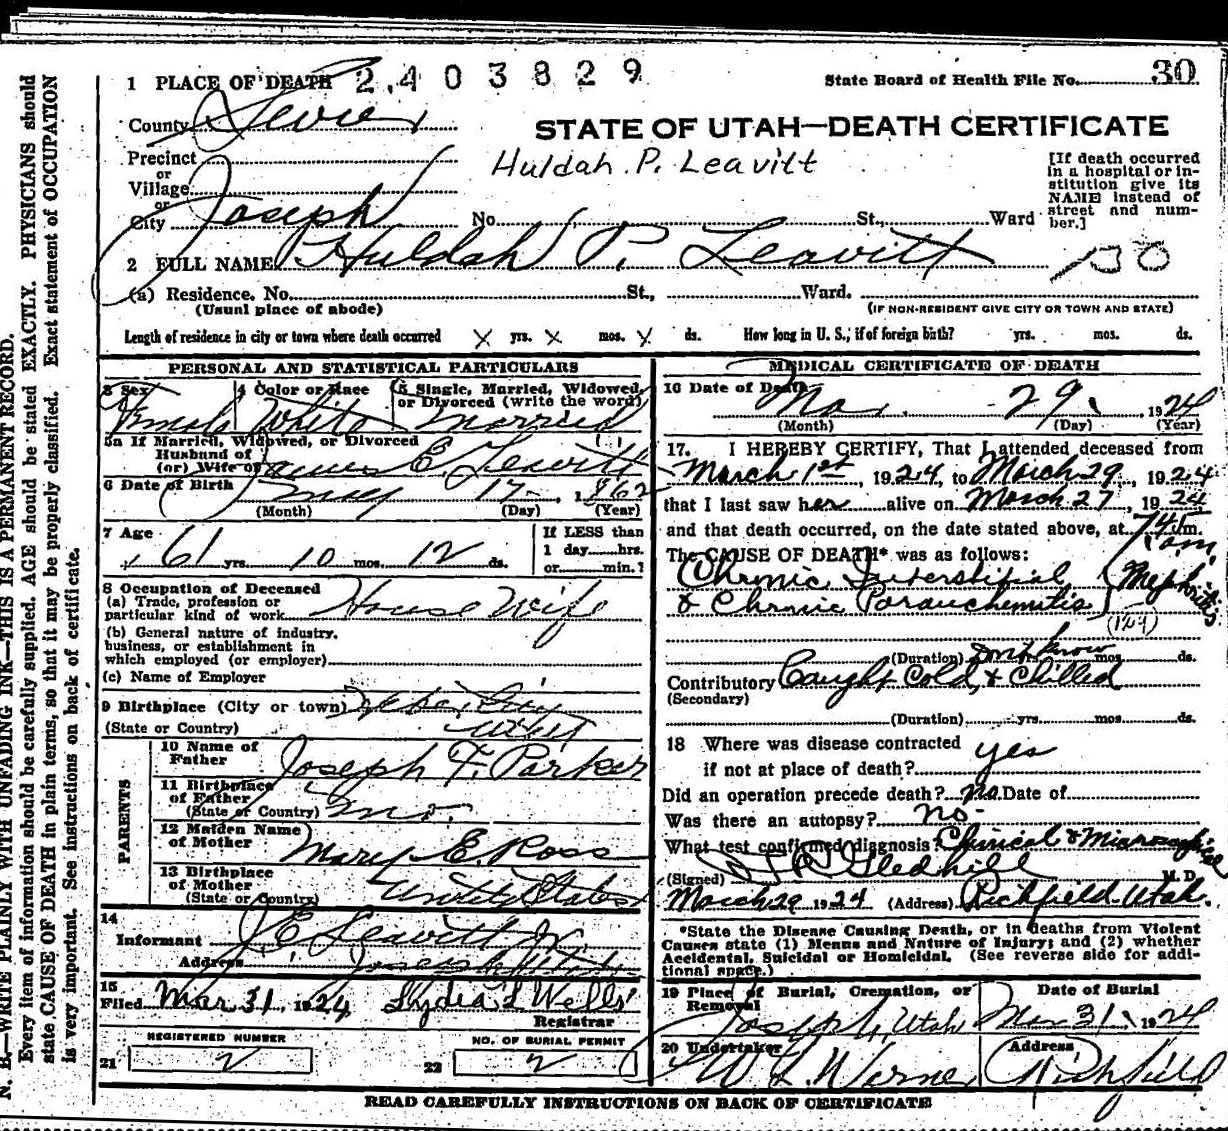 N. B.—WRITE PLAINLY WITH UNFADING INK—THIS IS A PERMANENT RECORD.
Every item of information should be carefully supplied. AGE should be stated EXACTLY. PHYSICIANS should
state CAUSE OF DEATH in plain terms, so that it may be properly classified. Exact statement of OCCUPATION
is very important. See instructions on back of certificate.
1 PLACE OF DEATH 2403829
State Board of Health File No. 30
County Sevier
STATE OF UTAH—DEATH CERTIFICATE
Precinct
or
Village
or
City Joseph
Huldah P. Leavitt
[If death occurred
in a hospital or in-
stitution give its
NAME instead of
street and num-
ber.]
No. St., Ward
2 FULL NAME Huldah P. Leavitt
130
(a) Residence. No. St., Ward.
(Usual place of abode) (IF NON-RESIDENT GIVE CITY OR TOWN AND STATE)
Length of residence in city or town where death occurred X yrs. X mos. X ds. How long in U. S., if of foreign birth? yrs. mos. ds.
PERSONAL AND STATISTICAL PARTICULARS
3 Sex 4 Color or Race 5 Single, Married, Widowed,
or Divorced (write the word)
Female White Married
5a If Married, Widowed, or Divorced
Husband of
(or) Wife of James E. Leavitt
6 Date of Birth May 17 1862
(Month) (Day) (Year)
7 Age
61 yrs. 10 mos. 12 ds.
If LESS than
1 day hrs.
or min.?
8 Occupation of Deceased
(a) Trade, profession or
particular kind of work House Wife
(b) General nature of industry,
business, or establishment in
which employed (or employer)
(c) Name of Employer
9 Birthplace (City or town)
(State or Country) Utah
PARENTS
10 Name of
Father Joseph F. Parker
11 Birthplace
of Father
(State or Country) Mo.
12 Maiden Name
of Mother Mary E. Ross
13 Birthplace
of Mother
(State or Country) United States
14
Informant J. E. Leavitt Jr.
Address Joseph Utah
15
Filed Mar 31 1924 Lydia L Wells
Registrar
REGISTERED NUMBER
21 2
NO. OF BURIAL PERMIT
22 2
MEDICAL CERTIFICATE OF DEATH
16 Date of Death Mar. 29. 1924
(Month) (Day) (Year)
17. I HEREBY CERTIFY, That I attended deceased from
March 1st, 1924, to March 29, 1924
that I last saw her alive on March 27, 1924
and that death occurred, on the date stated above, at 745 m.
am
The CAUSE OF DEATH* was as follows:
Chronic Interstitial
& Chronic Parauchemitis } Nephritis
(129)
(Duration) Dont know yrs. mos. ds.
Contributory Caught Cold, & Chilled
(Secondary)
(Duration) yrs. mos. ds.
18 Where was disease contracted yes
if not at place of death?
Did an operation precede death? No Date of
Was there an autopsy? no
What test confirmed diagnosis? Clinical & Microscopical
(Signed) Gledhill M. D.
March 29 1924 (Address) Richfield Utah.
*State the Disease Causing Death, or in deaths from Violent
Causes state (1) Means and Nature of Injury; and (2) whether
Accidental, Suicidal or Homicidal. (See reverse side for addi-
tional space.)
19 Place of Burial, Cremation, or
Removal Joseph, Utah
Date of Burial
Mar 31, 1924
20 Undertaker
W. L. Warner
Address
Richfield
READ CAREFULLY INSTRUCTIONS ON BACK OF CERTIFICATE